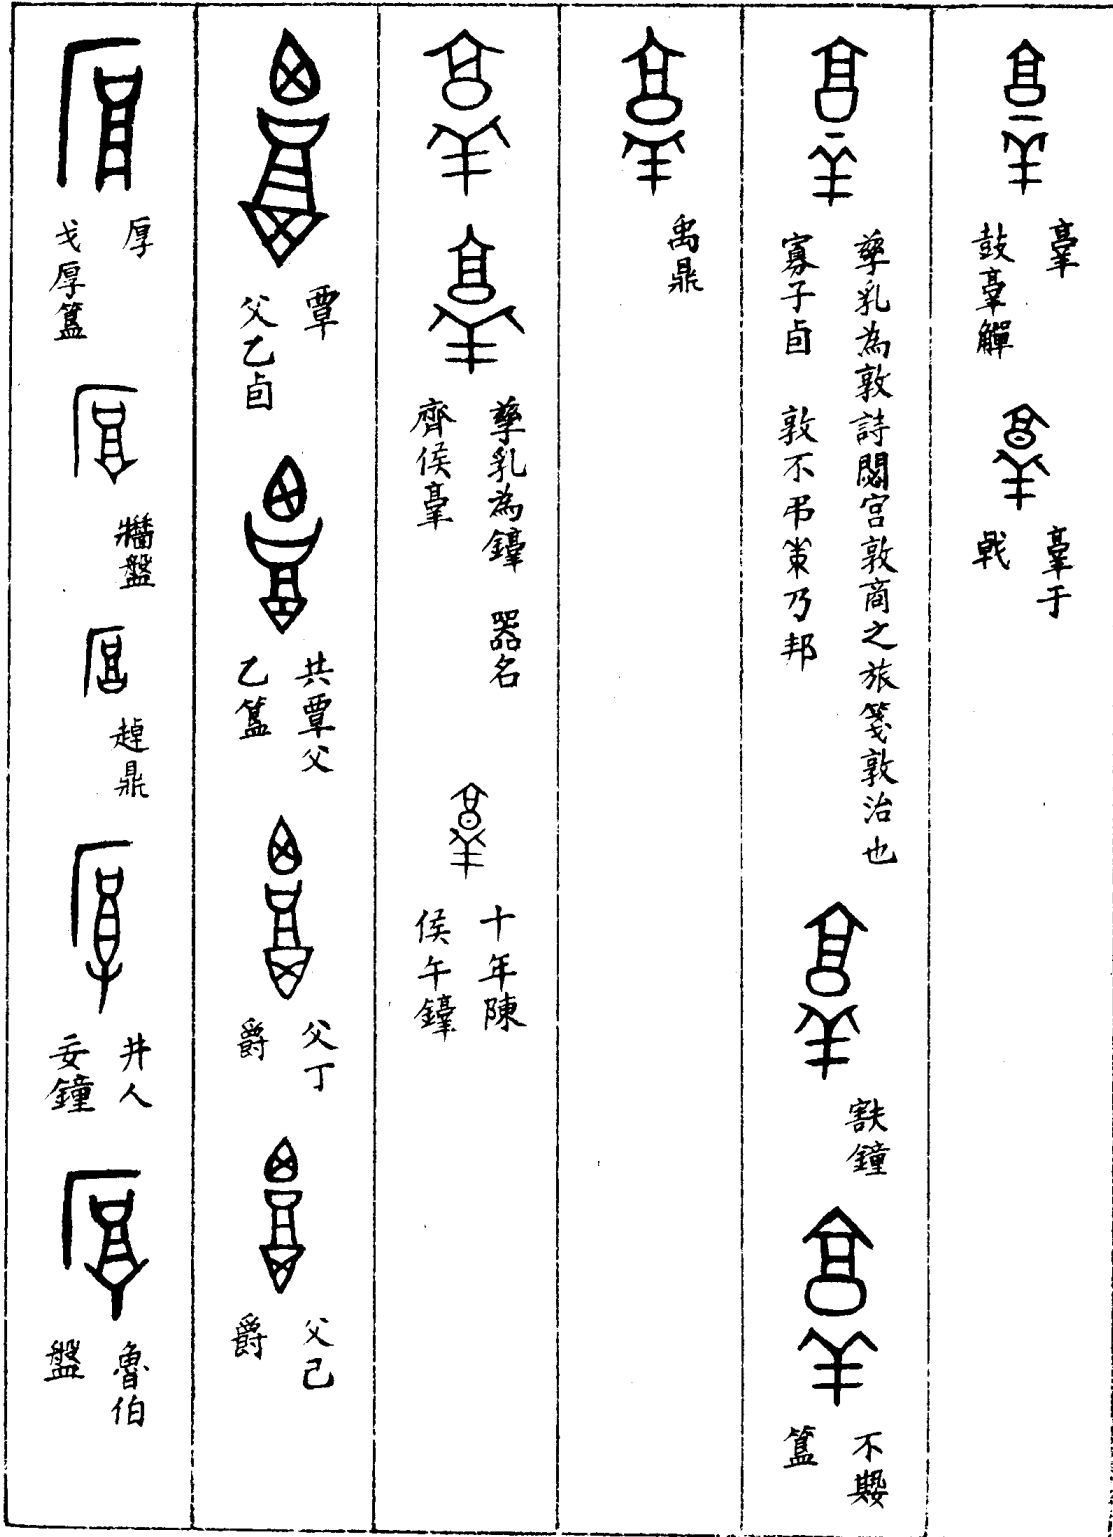 𦎫
鼓𦎫觶
𦎫于
戟
孳乳為敦詩閟宮敦商之旅箋敦治也
寡子卣 敦不弔乃邦
㝬鐘
不𡢁
簋
禹鼎
孳乳為 器名
齊侯𦎫
十年陳
侯午
覃
父乙卣
共覃父
乙簋
父丁
爵
父己
爵
厚
戈厚簋
牆盤
趠鼎
井人
妄鐘
魯伯
盤